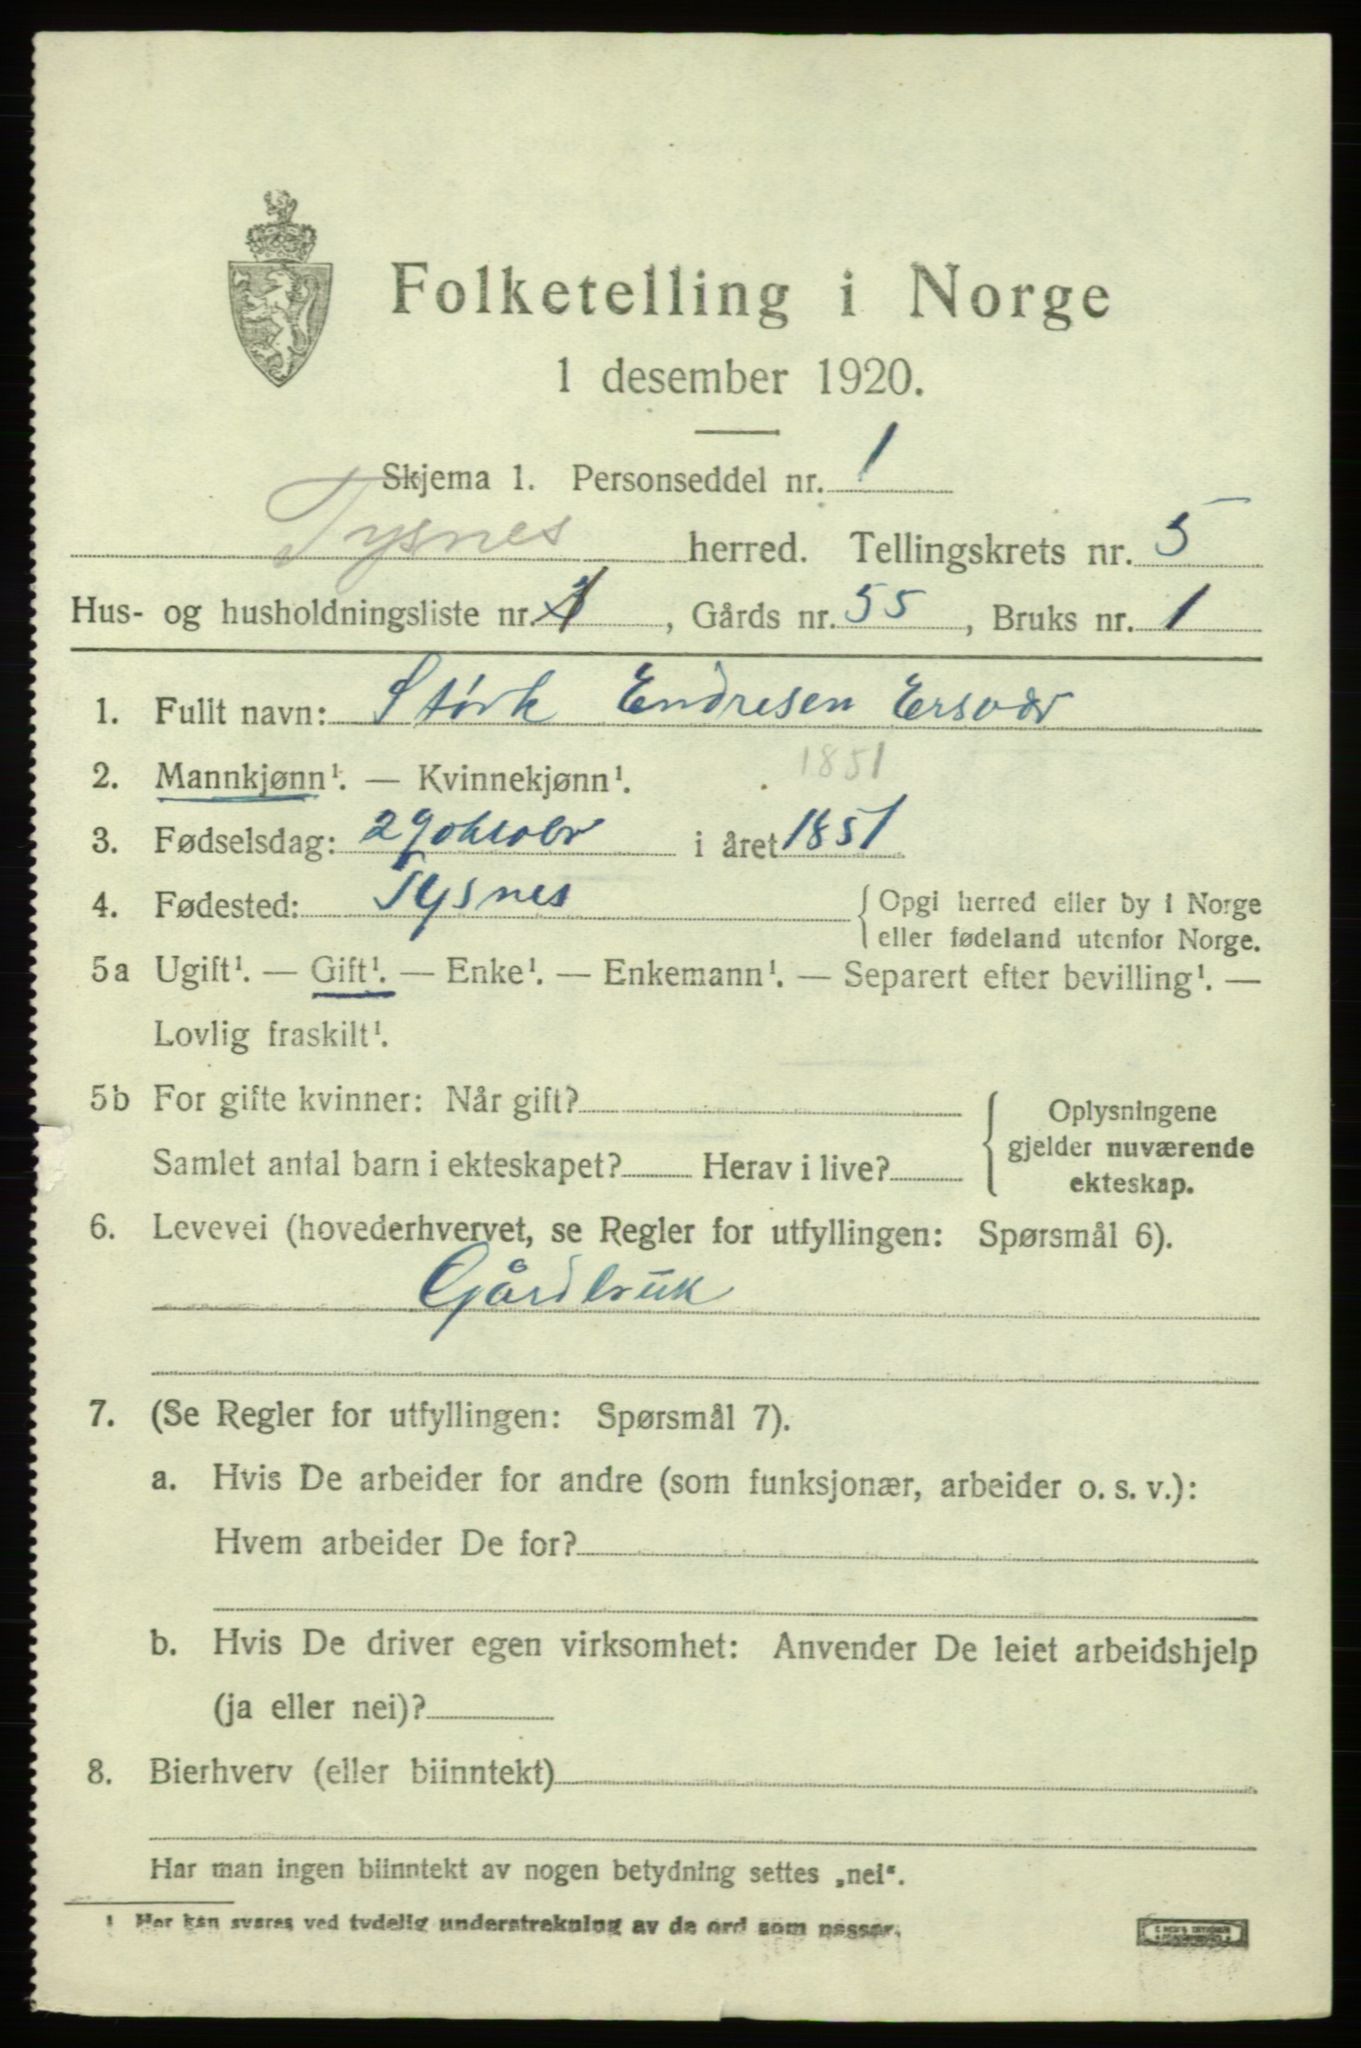 Folketelling i Norge
1 desember 1920.
Skjema 1. Personseddel nr. 1
Tysnes herred. Tellingskrets nr. 5
Hus- og husholdningsliste nr. 1, Gårds nr. 55, Bruks nr. 1
1. Fullt navn: Størk Endresen Ersvær
1851
2. Mannkjønn¹. — Kvinnekjønn¹.
3. Fødselsdag: 29 oktobr i året 1851
4. Fødested: Tysnes {Opgi herred eller by i Norge
eller fødeland utenfor Norge.
5a Ugift¹. — Gift¹. — Enke¹. — Enkemann¹. — Separert efter bevilling¹. —
Lovlig fraskilt¹.
5b For gifte kvinner: Når gift? {Oplysningene
gjelder nuværende
Samlet antal barn i ekteskapet? Herav i live?
ekteskap.
6. Levevei (hovederhvervet, se Regler for utfyllingen: Spørsmål 6).
Gårdbruk
7. (Se Regler for utfyllingen: Spørsmål 7).
a. Hvis De arbeider for andre (som funksjonær, arbeider o. s. v.):
Hvem arbeider De for?
b. Hvis De driver egen virksomhet: Anvender De leiet arbeidshjelp
(ja eller nei)?
8. Bierhverv (eller biinntekt)
Har man ingen biinntekt av nogen betydning settes „nei“.
¹ Her kan svares ved tydelig understrekning av de ord som passer.